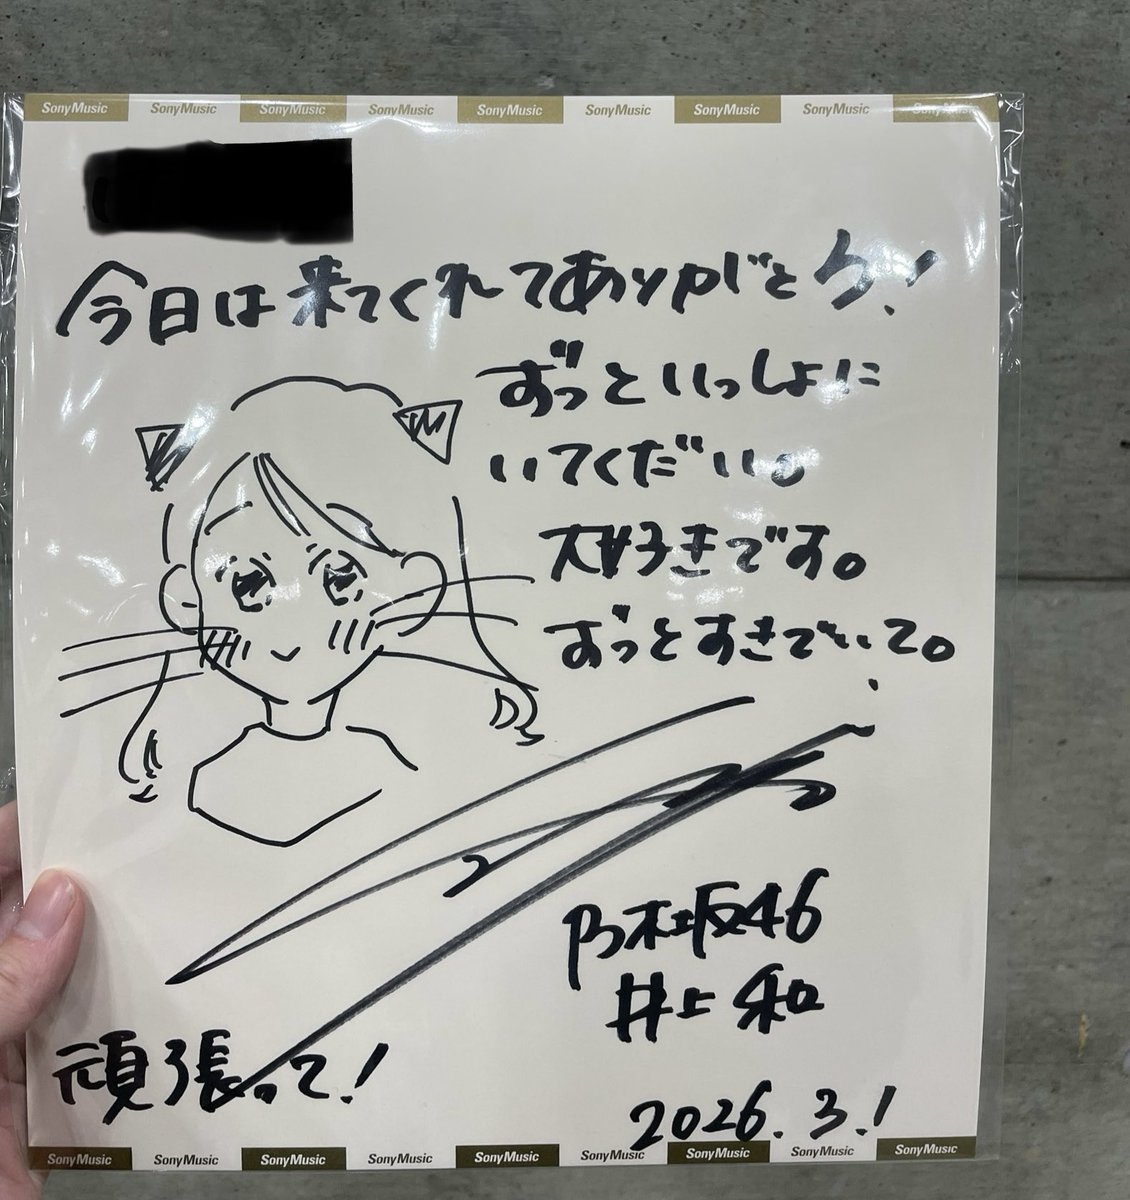 SonyMusic SonyMusic SonyMusic SonyMusic SonyMusic SonyMusic SonyMusic SonyMusic SonyMusic
今日は来てくれてありがとう!
ずっといっしょに
いてください。
大好きです。
ずっとすきでいて。
乃木坂46
井上和
頑張って!
2026.3.1
SonyMusic SonyMusic SonyMusic SonyMusic SonyMusic SonyMusic SonyMusic SonyMusic SonyMusic